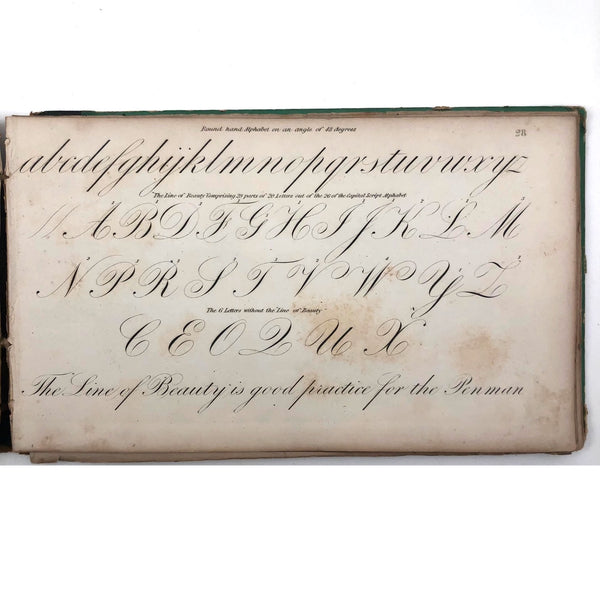 Round hand Alphabet on an angle of 48 degrees
28
abcdefghijklmnopqrstuvwxyz
The Line of Beauty Comprising 29 parts of 20 Letters out of the 26 of the Capital Script Alphabet.
A B D F G H I J K L M
N P R S T V W Y Z
The 6 Letters without the Line of Beauty
C E O Q U X
The Line of Beauty is good practice for the Penman